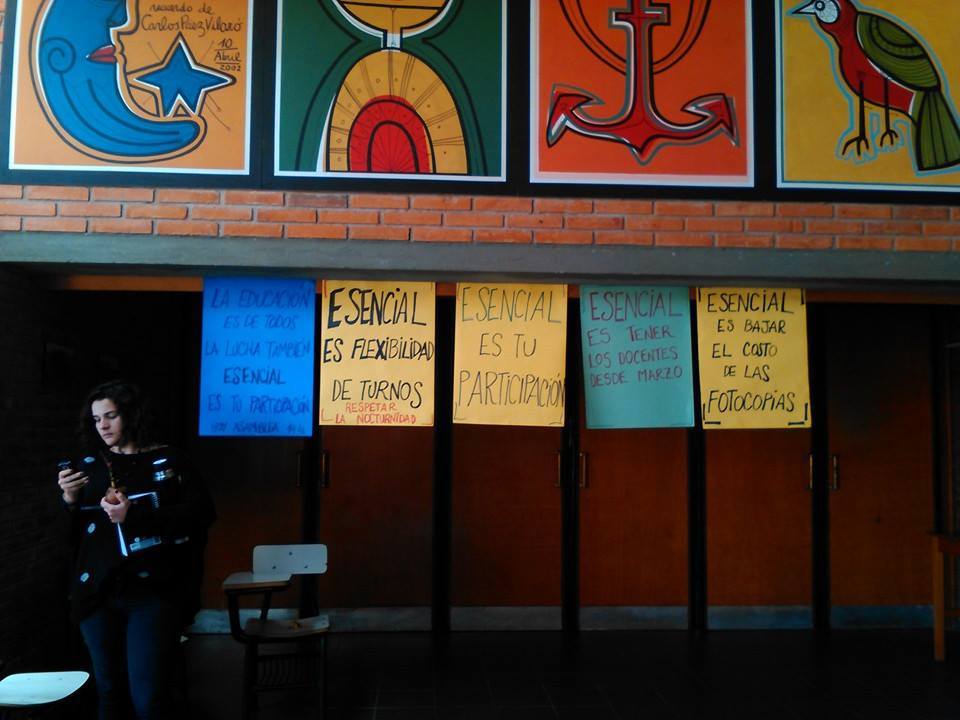 recuerdo de
Carlos Páez Vilaró
10
Abril
2002
LA EDUCACIÓN
ES DE TODOS
LA LUCHA TAMBIÉN
ESENCIAL
ES TU PARTICIPACIÓN
HOY ASAMBLEA
ESENCIAL
ES FLEXIBILIDAD
DE TURNOS
RESPETAR
LA NOCTURNIDAD
ESENCIAL
ES TU
PARTICIPACIÓN
ESENCIAL
ES TENER
LOS DOCENTES
DESDE MARZO
ESENCIAL
ES BAJAR
EL COSTO
DE LAS
FOTOCOPIAS